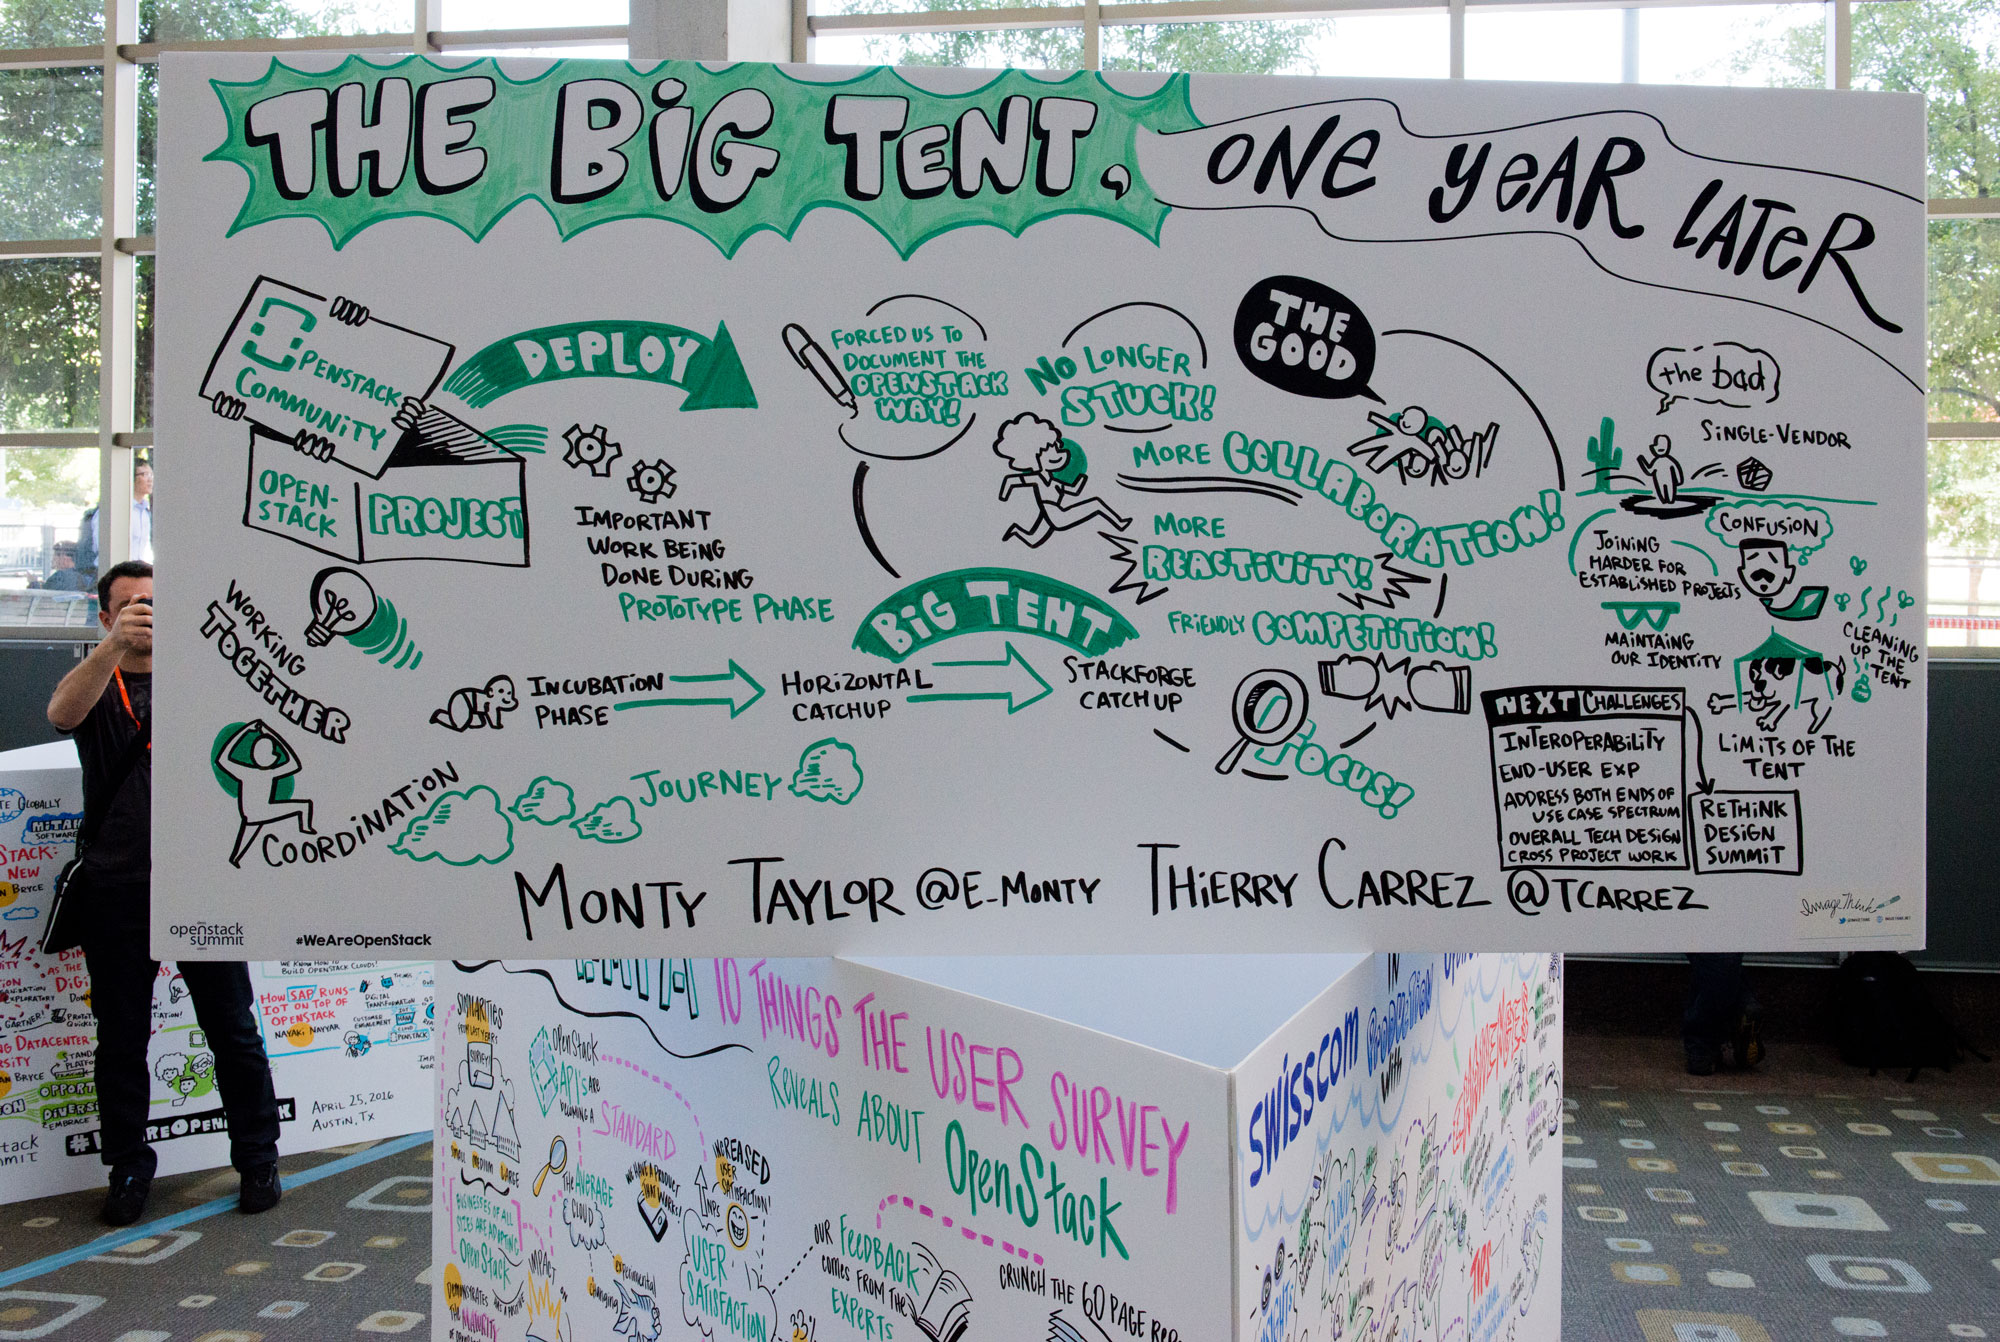 THE BIG TENT, ONE YEAR LATER
OPENSTACK
COMMUNITY
OPEN-
STACK
PROJECT
DEPLOY
IMPORTANT
WORK BEING
DONE DURING
PROTOTYPE PHASE
WORKING
TOGETHER
COORDINATION
JOURNEY
INCUBATION
PHASE
HORIZONTAL
CATCHUP
BIG TENT
STACKFORGE
CATCH UP
FORCED US TO
DOCUMENT THE
OPENSTACK
WAY!
NO LONGER
STUCK!
THE
GOOD
MORE COLLABORATION!
MORE
REACTIVITY!
FRIENDLY COMPETITION!
FOCUS!
the bad
SINGLE-VENDOR
CONFUSION
JOINING
HARDER FOR
ESTABLISHED PROJECTS
MAINTAINING
OUR IDENTITY
CLEANING
UP THE
TENT
LIMITS OF THE
TENT
NEXT CHALLENGES
INTEROPERABILITY
END-USER EXP
ADDRESS BOTH ENDS OF
USE CASE SPECTRUM
OVERALL TECH DESIGN
CROSS PROJECT WORK
RETHINK
DESIGN
SUMMIT
MONTY TAYLOR @E_MONTY THIERRY CARREZ @TCARREZ
openstack
summit
#WeAreOpenStack
ImageThink
10 THINGS THE USER SURVEY
REVEALS ABOUT OpenStack
SIMILARITIES
FROM LAST YEARS
SURVEY
SMALL MEDIUM LARGE
BUSINESSES OF ALL
SIZES ARE ADOPTING
OpenStack
DEMONSTRATES
THE MATURITY
IMPACT
OpenStack
API's ARE
BECOMING A
STANDARD
THE AVERAGE
CLOUD
experimental
changing
WE HAVE A PRODUCT
THAT WORKS!
INCREASED
USER
SATISFACTION!
NPS
USER
SATISFACTION
33%
OUR FEEDBACK
COMES FROM THE
EXPERTS
CRUNCH THE 60 PAGE
SWISSCOM
IN
PRODUCTION
with
TIPS
WE KNOW HOW TO
BUILD OPENSTACK CLOUDS!
HOW SAP RUNS
IOT ON TOP OF
OPENSTACK
NAYAKI NAYYAR
DIGITAL
TRANSFORMATION
CUSTOMER
ENGAGEMENT
APRIL 25, 2016
AUSTIN, TX
GLOBALLY
STACK:
NEW
BRYCE
GARTNER!
DATACENTER
BRYCE